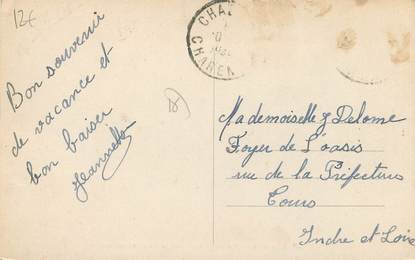 12€
CHA
CHAREN
Bon souvenir
de vacance et
bon baiser
Jeannette
18
Mademoiselle J Delome
Foyer de L'oasis
rue de la Préfecture
Tours
Indre et Loire